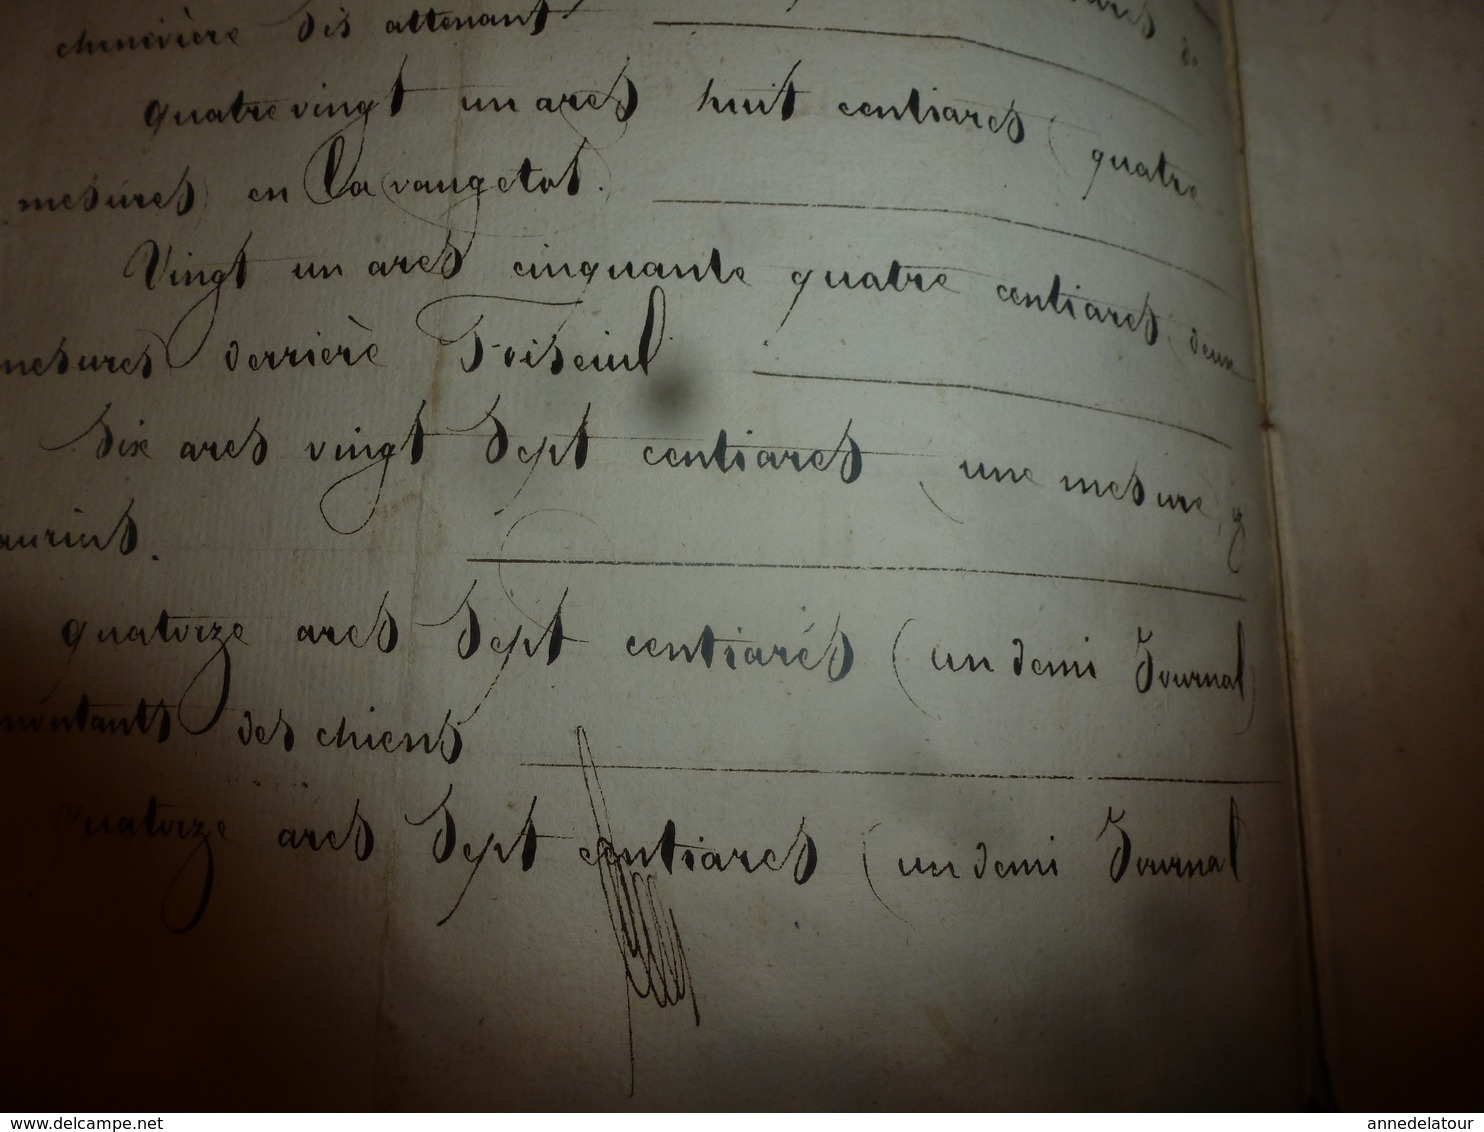 chenevière dis attenant
quatre vingt un ares huit centiares (quatre
mesures) en La vangetot.
Vingt un ares cinquante quatre centiares (deux
mesures derrière Foiseiul
Six ares vingt Sept centiares (une mesure)
quatorze ares Sept centiares (un demi Journal)
montants des chiens
quatorze ares Sept centiares (un demi Journal
www.delcampe.net
annedelatour